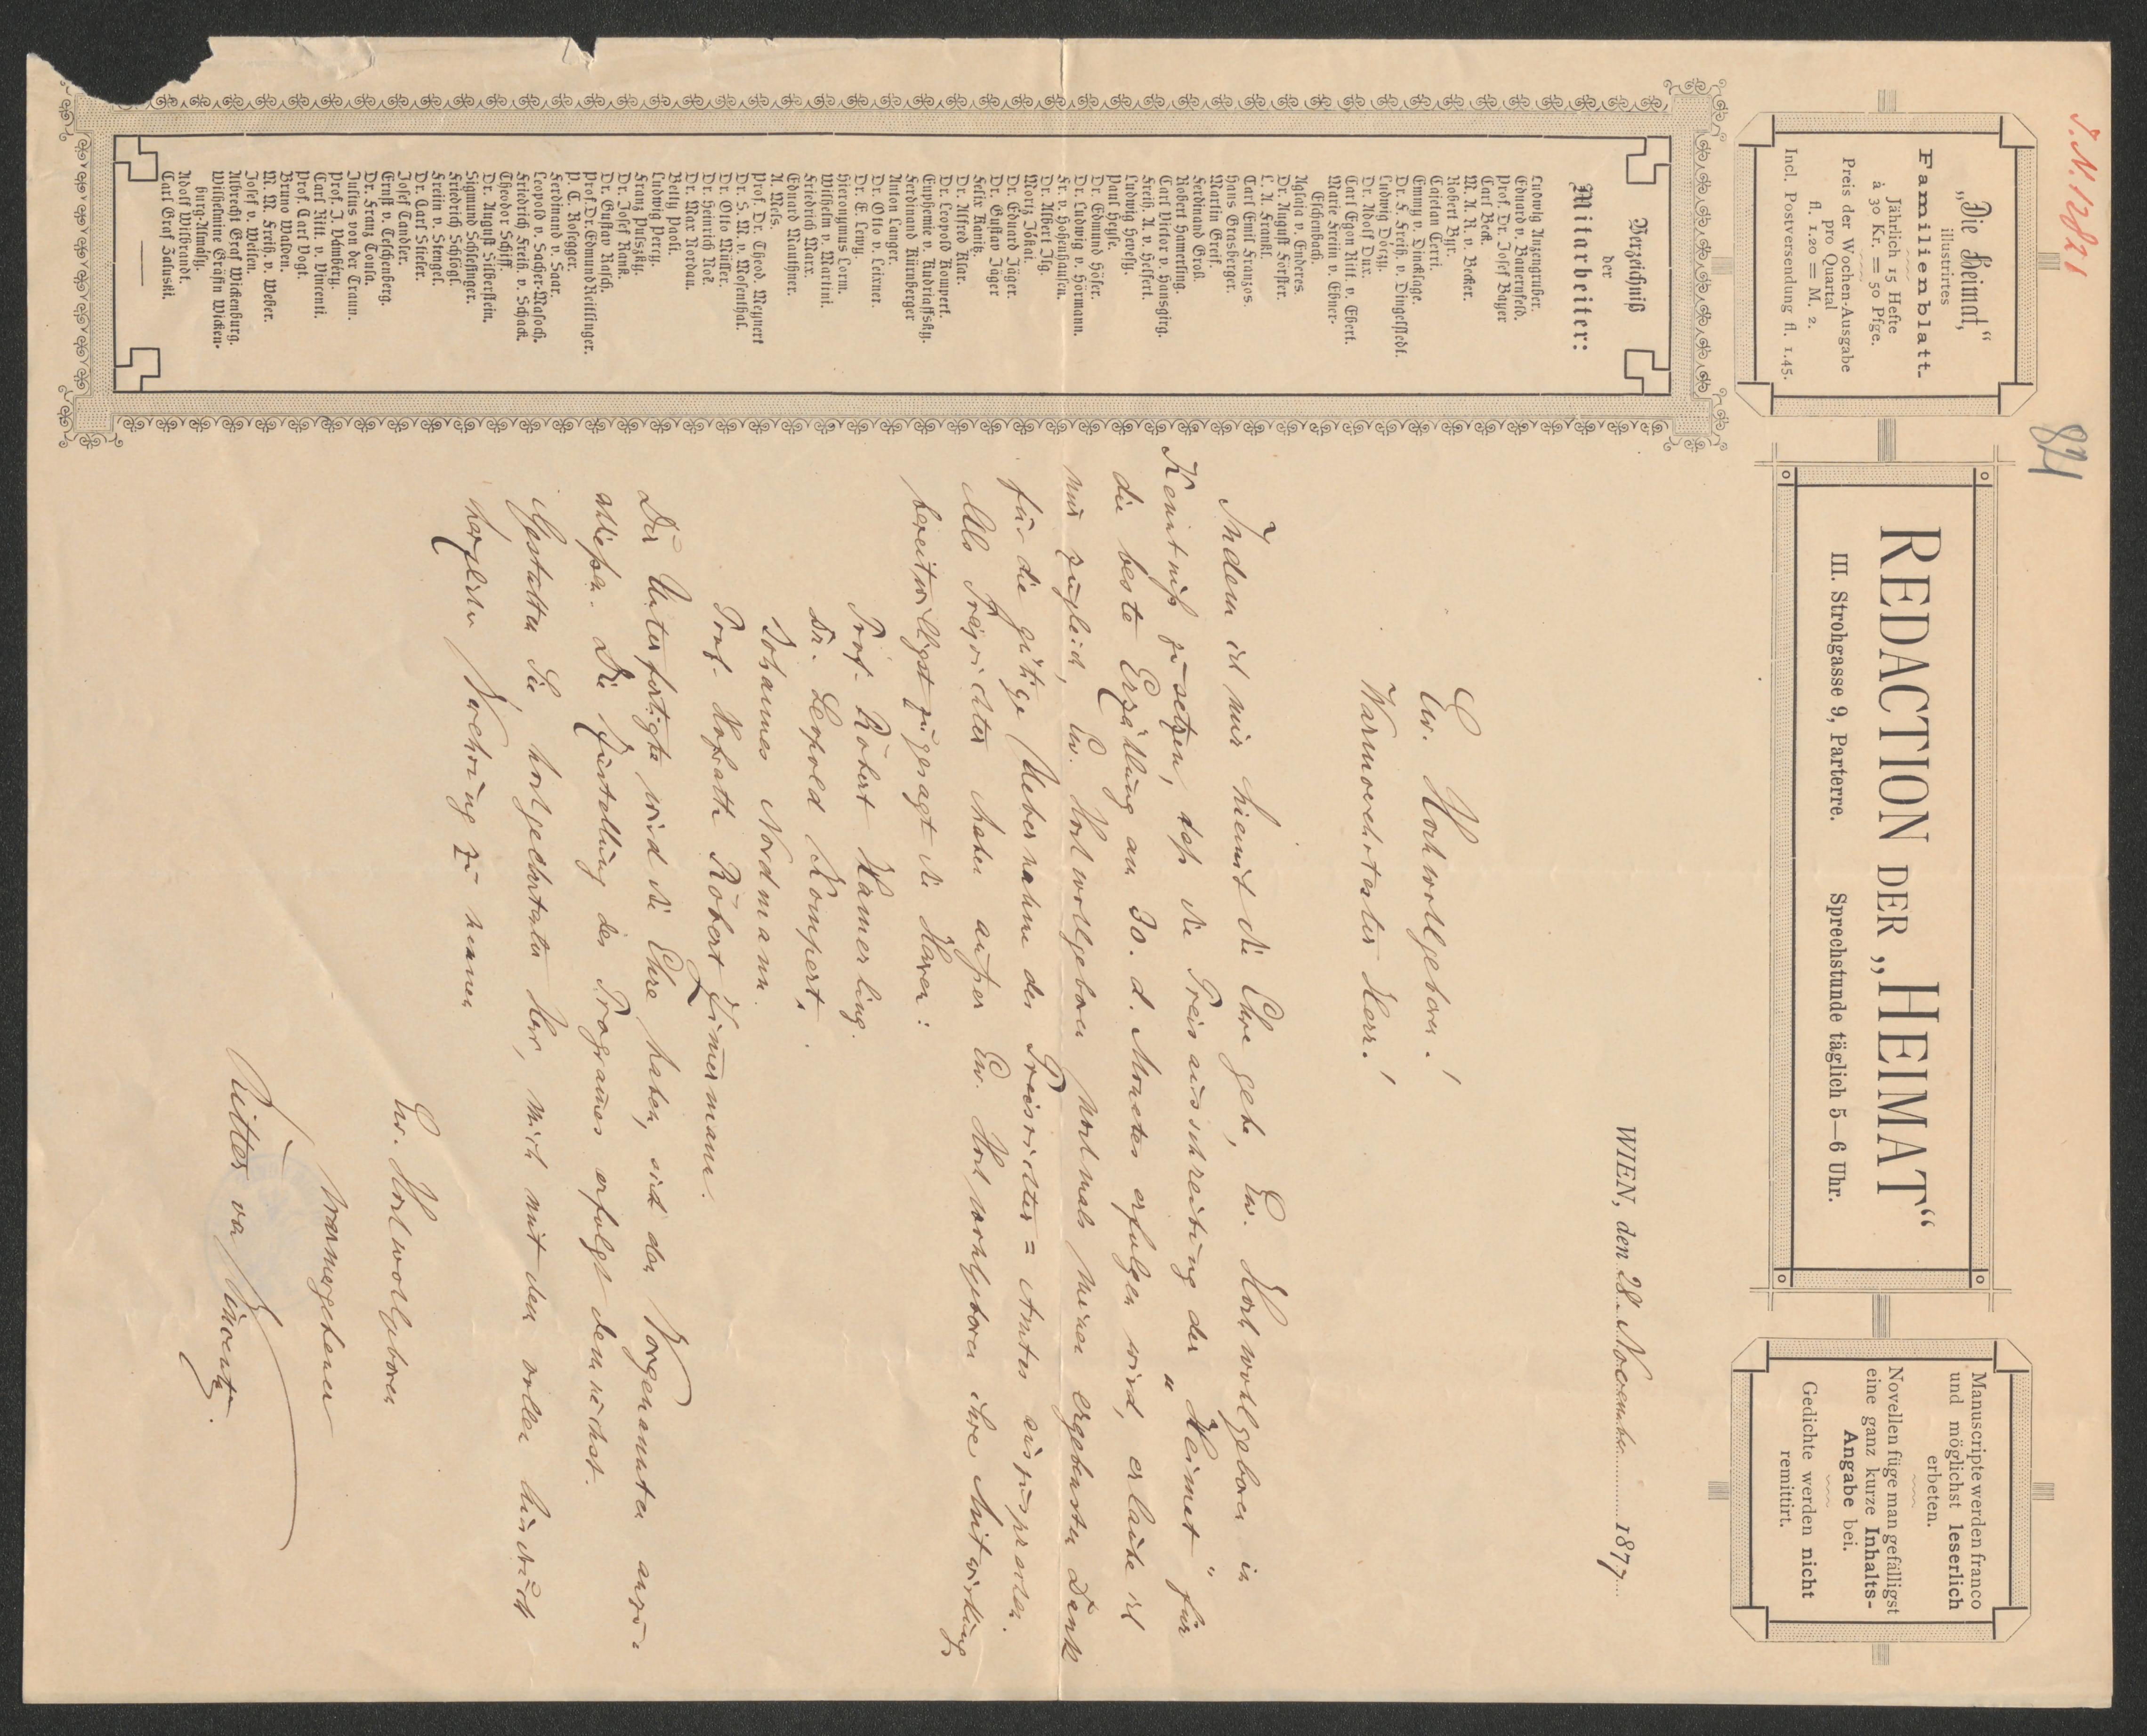 I.N. 17821
821
„Die Heimat,“
illustrirtes
Familienblatt.
Jährlich 15 Hefte
à 30 Kr. = 50 Pfge.
Preis der Wochen-Ausgabe
pro Quartal
fl. 1.20 = M. 2.
Incl. Postversendung fl. 1.45.
REDACTION DER „HEIMAT“
III. Strohgasse 9, Parterre. Sprechstunde täglich 5—6 Uhr.
Manuscripte werden franco
und möglichst leserlich
erbeten.
Novellen füge man gefälligst
eine ganz kurze Inhalts-
Angabe bei.
Gedichte werden nicht
remittirt.
WIEN, den 28. November 1877
Verzeichniß
der
Mitarbeiter:
Ludwig Anzengruber.
Eduard v. Bauernfeld.
Prof. Dr. Josef Bayer
Carl Beck.
M. A. R. v. Becker.
Robert Byr.
Cajetan Cerri.
Emmy v. Dincklage.
Dr. F. Freih. v. Dingelstedt.
Ludwig Dóczy.
Dr. Adolf Dux.
Carl Egon Ritt. v. Ebert.
Marie Freiin v. Ebner-
Eschenbach.
Aglaja v. Enderes.
Dr. August Förster.
L. A. Frankl.
Carl Emil Franzos.
Hans Grasberger.
Martin Greif.
Ferdinand Groß.
Robert Hamerling.
Carl Victor v. Hansgirg.
Freih. A. v. Helfert.
Ludwig Hevesy.
Paul Heyse.
Dr. Edmund Höfer.
Dr. Ludwig v. Hörmann.
Fr. v. Hohenhausen.
Dr. Albert Ilg.
Moriz Jókai.
Dr. Eduard Jäger.
Dr. Gustav Jäger
Felix Kanitz.
Dr. Alfred Klar.
Dr. Leopold Kompert.
Euphemie v. Kudriaffsky.
Ferdinand Kürnberger
Anton Langer.
Dr. Otto v. Leixner.
Dr. E. Lewy.
Hieronymus Lorm.
Wilhelm v. Martini.
Friedrich Marx.
Eduard Mauthner.
A. Mels.
Prof. Dr. Theod. Meynert
Dr. S. M. v. Mosenthal.
Dr. Otto Müller.
Dr. Heinrich Noë.
Dr. Max Nordau.
Betty Paoli.
Ludwig Perry.
Franz Pulszky.
Dr. Josef Rank.
Dr. Gustav Rasch.
Prof. Dr. Edmund Reitlinger.
P. C. Rosegger.
Ferdinand v. Saar.
Leopold v. Sacher-Masoch.
Friedrich Freih. v. Schack.
Theodor Schiff.
Dr. August Silberstein.
Sigmund Schlesinger.
Friedrich Schlögl.
Freiin v. Stengel.
Dr. Carl Stieler.
Josef Tandler.
Ernst v. Teschenberg.
Dr. Franz Toula.
Julius von der Traun.
Prof. J. Vámbéry.
Carl Ritt. v. Vincenti.
Prof. Carl Vogt.
Bruno Walden.
M. M. Freih. v. Weber.
Josef v. Weilen.
Albrecht Graf Wickenburg.
Wilhelmine Gräfin Wicken-
burg-Almásy.
Adolf Wilbrandt.
Carl Graf Zaluski.
Ew. Hochwolgeboren!
Warmverehrtester Herr!
Indem ich mir hiemit die Ehre gebe, Ew. Hochwohlgeboren in
Kenntniß zu setzen, daß die Preisausschreibung der „Heimat“ für
die beste Erzählung am 30. d. Monates erfolgen wird, erlaube ich
mir zugleich, Ew. Hochwolgeboren nochmals meinen ergebensten Dank
für die gütige Uebernahme des Preisrichter=Amtes auszusprechen.
Als Preisrichter haben außer Ew. Hochwohlgeboren ihre Mitwirkung
bereitwilligst zugesagt die Herren:
Prof. Robert Hamerling.
Dr. Leopold Kompert.
Johannes Nordmann.
Prof. Hofrath Robert Zimermann.
Der Unterfertigte wird die Ehre haben, sich den Vorgenannten anzu-
schließen. Die Zustellung des Programes erfolgt demnächst.
Gestatten Sie, hochgeehrtester Herr, mich mit dem vollen Ausdruck
herzlicher Verehrung zu nennen
Ew. Hochwolgeboren
warmergebenen
Ritter von Vincenti.